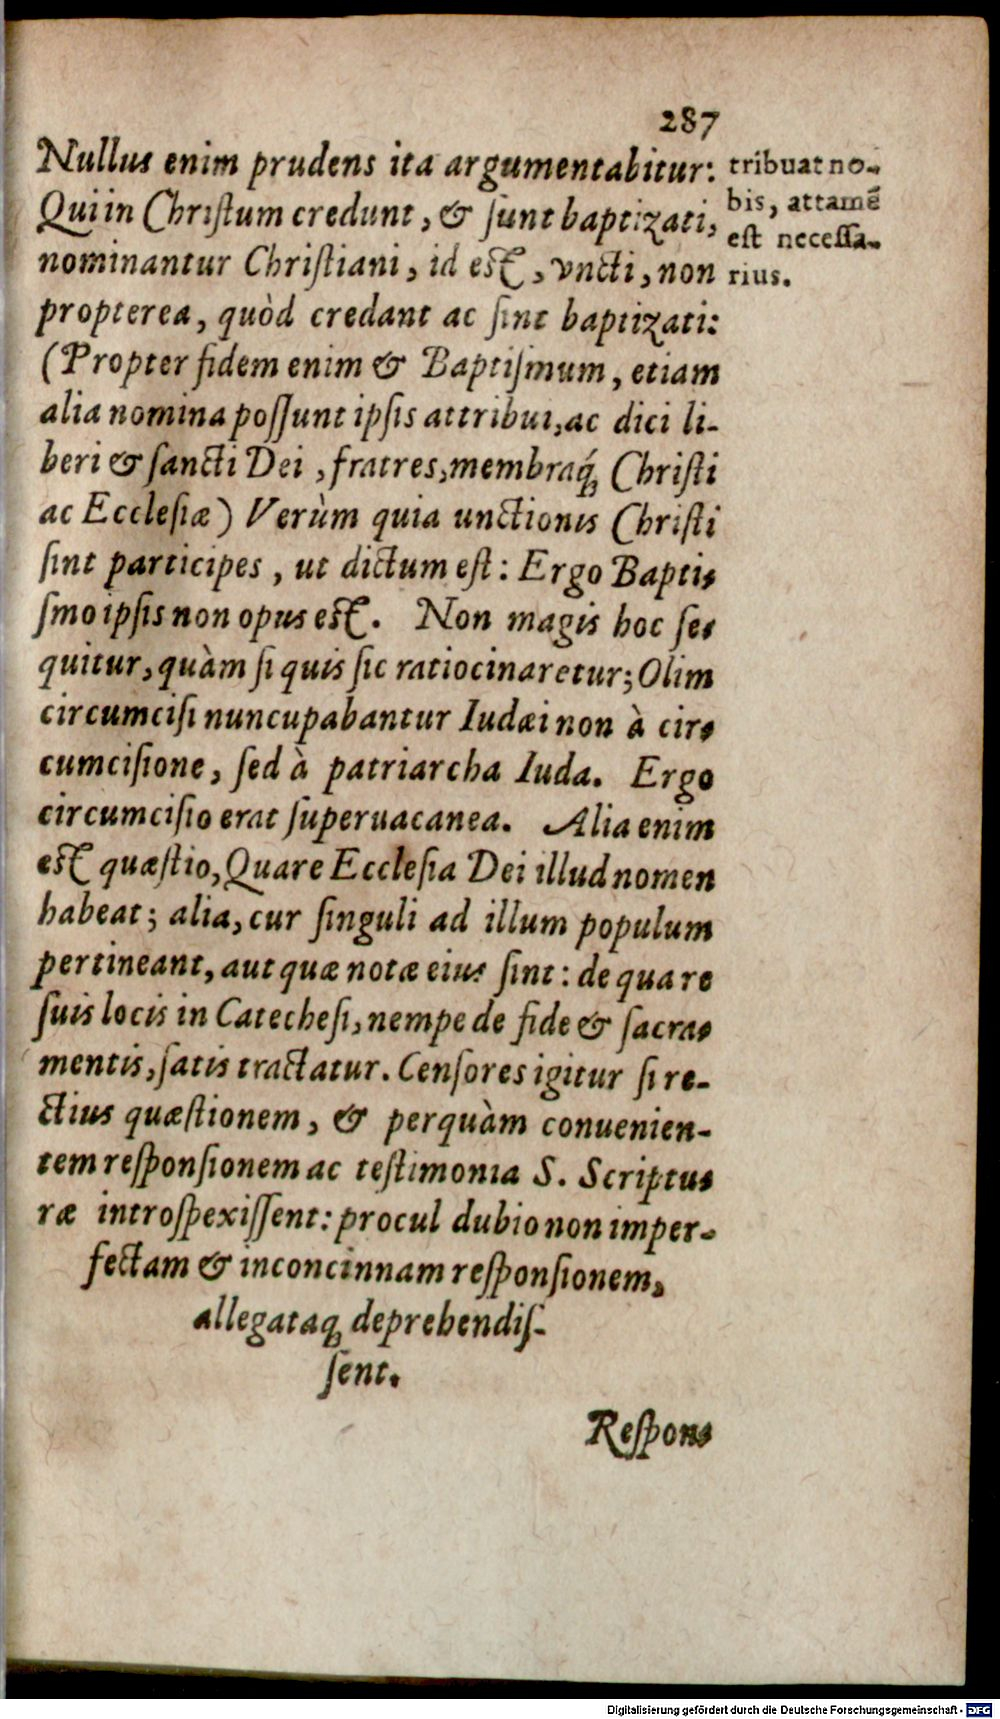 287
Nullus enim prudens ita argumentabitur:
Qui in Christum credunt, & sunt baptizati,
nominantur Christiani, id est, vncti, non
propterea, quòd credant ac sint baptizati:
(Propter fidem enim & Baptismum, etiam
alia nomina possunt ipsis attribui, ac dici li-
beri & sancti Dei, fratres, membraq́; Christi
ac Ecclesiæ) Verùm quia unctionis Christi
sint participes, ut dictum est: Ergo Baptis
smo ipsis non opus est. Non magis hoc se-
quitur, quàm si quis sic ratiocinaretur; Olim
circumcisi nuncupabantur Iudæi non à cir-
cumcisione, sed à patriarcha Iuda. Ergo
circumcisio erat superuacanea. Alia enim
est quæstio, Quare Ecclesia Dei illud nomen
habeat; alia, cur singuli ad illum populum
pertineant, aut quæ notæ eius sint: de qua re
suis locis in Catechesi, nempe de fide & sacra-
mentis, satis tractatur. Censores igitur si re-
ctius quæstionem, & perquàm conuenien-
tem responsionem ac testimonia S. Scriptu-
ræ introspexissent: procul dubio non imper-
fectam & inconcinnam responsionem,
allegataq; deprehendis-
sent.
Respon-
tribuat no-
bis, attamē
est necessa-
rius.
Digitalisierung gefördert durch die Deutsche Forschungsgemeinschaft - DFG